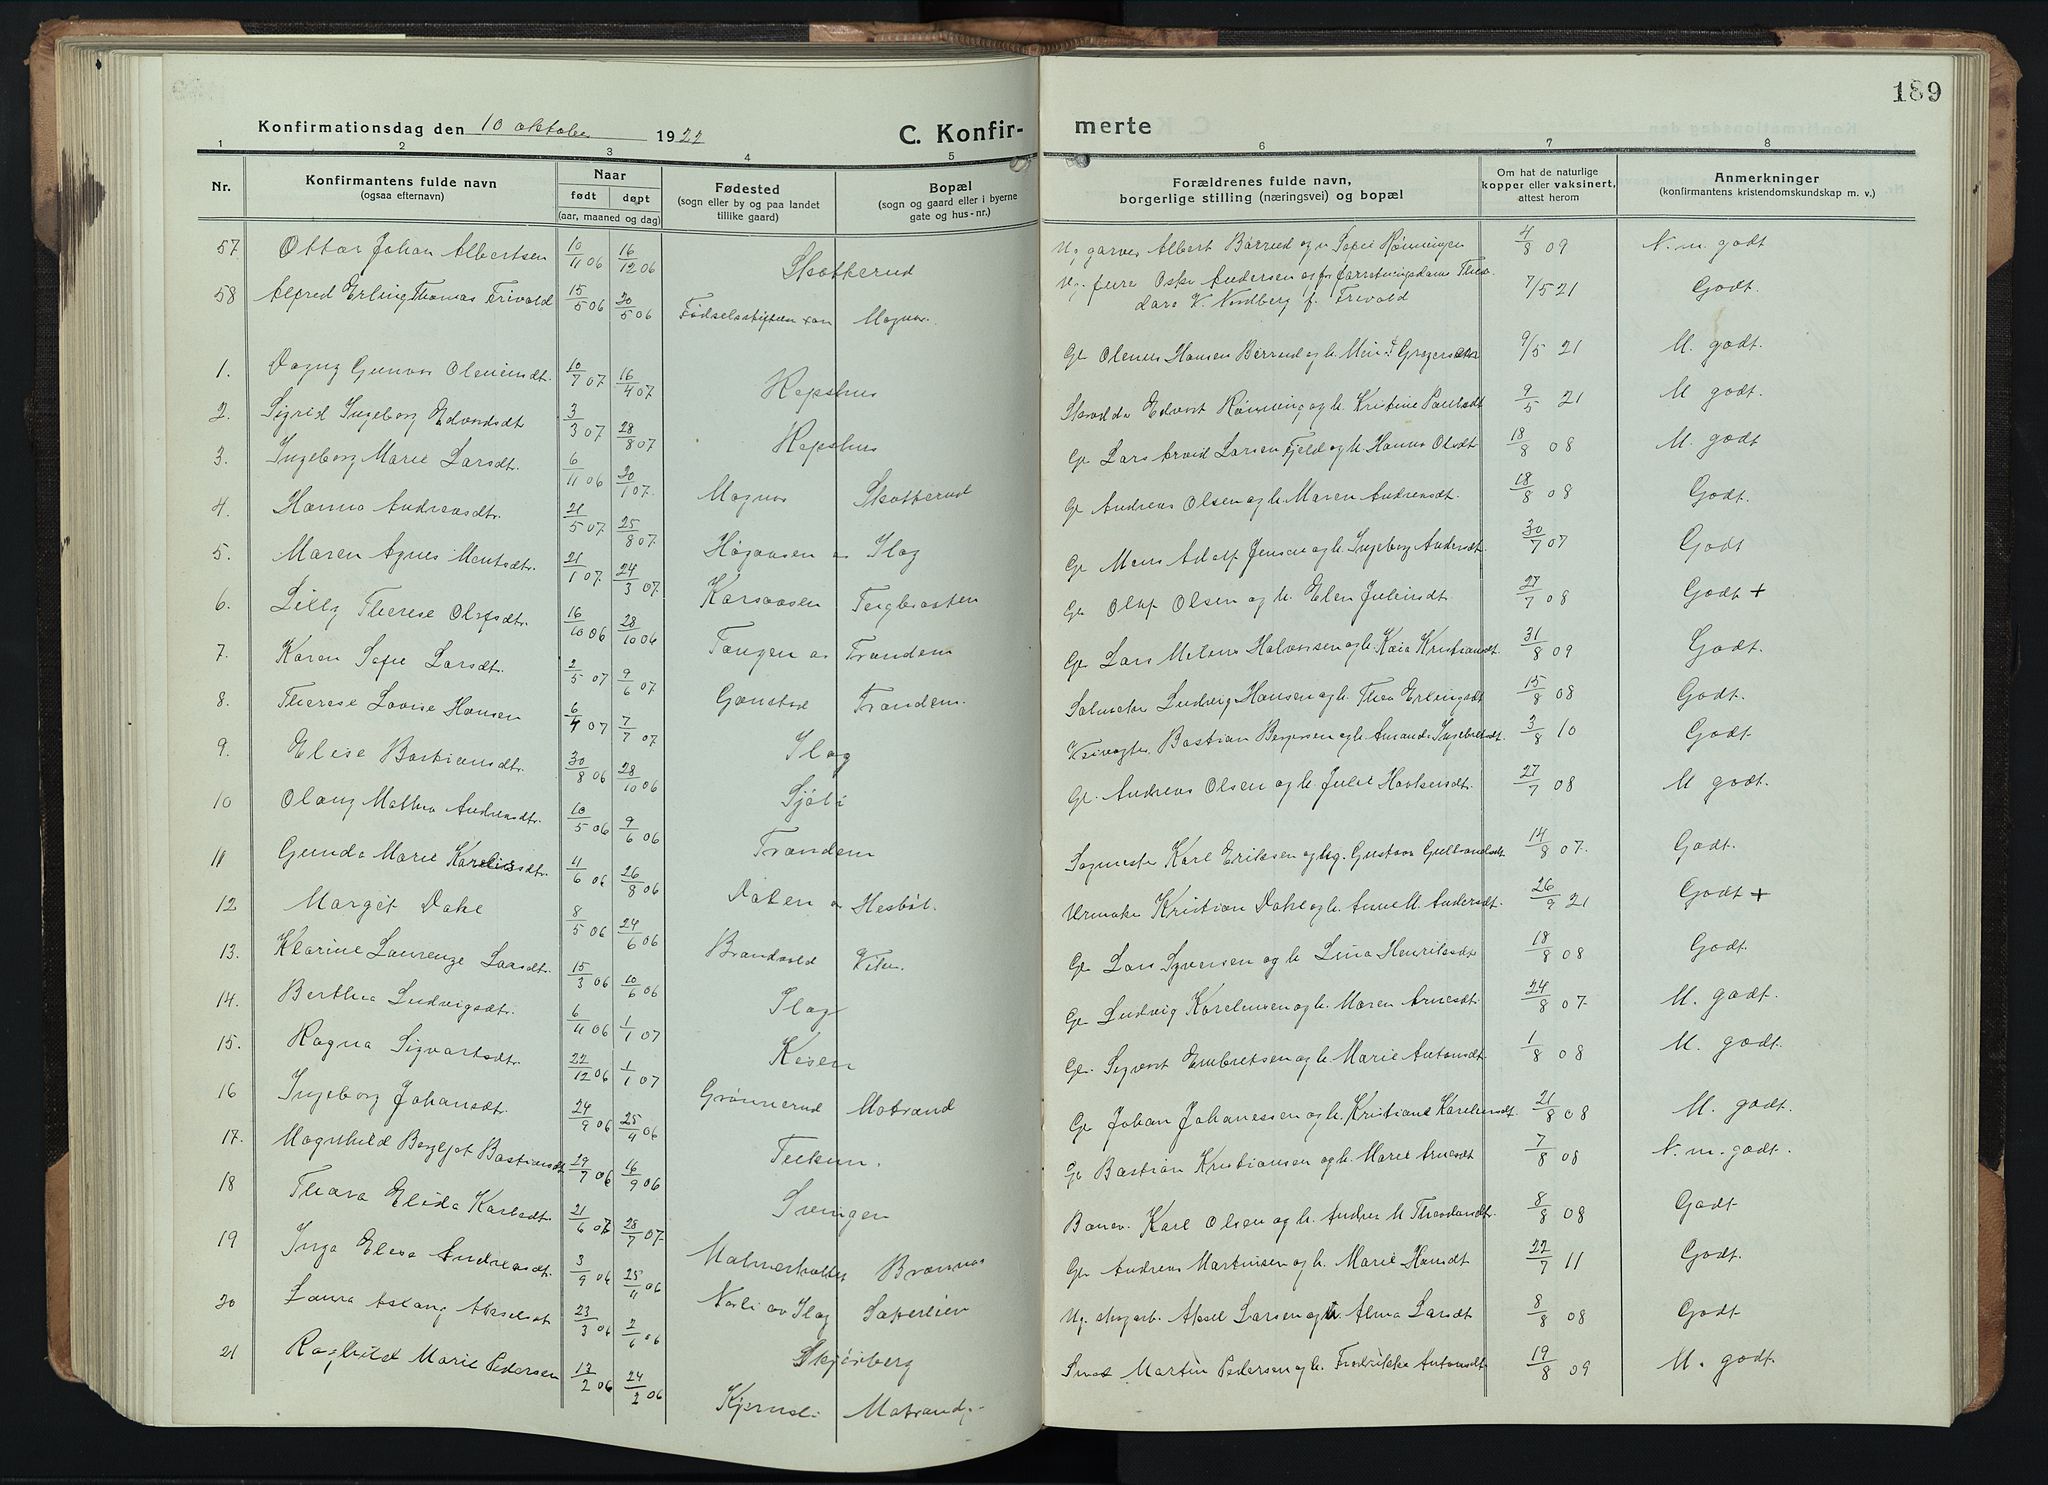 189
Konfirmationsdag den 10 oktober 1922
C. Konfirmerte
1 2 3 4 5 6 7 8
Nr.
Konfirmantens fulde navn
(ogsaa efternavn)
Naar
født døpt
(aar, maaned og dag)
Fødested
(sogn eller by og paa landet
tillike gaard)
Bopæl
(sogn og gaard eller i byerne
gate og hus-nr.)
Forældrenes fulde navn,
borgerlige stilling (næringsvei) og bopæl
Om hat de naturlige
kopper eller vaksinert,
attest herom
Anmerkninger
(konfirmantens kristendomskundskap m. v.)
57 Ottar Johan Albertsen 10/11 06 16/12 06 Skotterud Ug garver Albert Børrud og Sofie Rønningen 4/8 09 N. m. godt
58 Alfred Erling Thomas Trivold 15/5 06 20/5 06 Fødselsstiftelsen Magnor. Ug. Andersen og
V. Nordberg f. Trivold 7/5 21 Godt.
1. Dagny Gunvor Oleniusdt. 10/7 07 16/4 07 Repshus Ga Olenius Hansen Børrud og h. 9/5 21 M. godt.
2. Sigrid Ingeborg Edvardsdt 3/3 07 28/8 07 Repshus Edvart Rønning og h. Kristine Paulsdt 9/5 21 M godt.
3. Ingeborg Marie Larsdt. 6/11 06 20/1 07. Magnor Skotterud Ga Lars Arvid Larsen Fjeld og h. Hanna Olsdt 18/8 08 M. godt
4. Hanna Andreasdtr. 21/5 07 25/8 07. Høgaasen av Ilag Ga Andreas Olsen og h. Maren Andreasdt. 18/8 08 Godt.
5. Maren Agnes Montsdtr. 21/1 07. 24/3 07. Karsaasen Teigbraaten Ga Mons Adolf Jensen og h. Ingeborg Andersdt. 30/7 07 Godt
6. Lilly Therese Olofsdtr. 16/10 06 28/10 06 Tangen av Trandem Ga Oluf Olsen og h. Elen Juliusdt. 27/7 08 Godt +
7. Karen Sofie Larsdt. 2/5 07 9/6 07 Trandem. Ga Lars Halvorsen og h. Kaia Kristiansdt. 31/8 09 Godt.
8. Therese Lovise Hansen 6/4 07 7/7 07 Ilag Ludvig Hansen og h. Thea Erlingsdt 15/8 08 Godt.
9. Elise Bastiansdtr. 30/8 06 28/10 06 Sjøli Bastian Bergersen og h. Amanda Ingebretsdt. 3/8 10 Godt.
10 Olaug Mathea Andreasdtr. 10/5 06 9/6 06 Trandem Ga. Andreas Olsen og h. Julie Haakensdt. 27/7 08 M godt.
11 Gunda Marie Karelisdtr. 11/6 06 26/8 06 Hesbøl. Sagmester Karl Eriksen og hg. Gustava Gulbrandsdt 14/8 07. Godt.
12 Margit Dahl 8/5 06 24/6 06 Brandvold Urmaker Kristian Dahl og h. Anne M. Andersdt. 26/9 21 Godt +
13. Klarine Laurenze Larsdt. 15/3 06 10/6 06 Ilag Ga Lars Syversen og h. Lina Henriksdt 18/8 08 Godt.
14. Berthea Ludvigsdtr. 6/11 06 1/1 07 Keisen Ga Ludvig Karelinsen og h. Maren Arnesdt. 24/8 07. M. godt.
15. Ragna Sigvartsdtr. 22/12 06 1/1 07 Grønnerud Matrand Ga. Sigvart Embretsen og h. Marie Antonsdt. 1/8 08 M. godt.
16 Ingeborg Johansdt. 24/9 06 25/4 06 Ga Johan Johanessen og h. Kristiane Karelinsdt. 21/8 08 M. godt.
17. Magnhild Bergljot Bastiansdt 29/7 06 16/9 06 Svingen Ga Bastian Kristiansen og h. Marie Arnesdt 7/8 08 N. m. godt.
18 Thora Elida Karlsdt. 21/6 07. 28/7 07. Brænnes Banev. Karl Olsen og h. Andrea M Theodorsdt. 8/8 08 Godt
19 Inga Elisa Andreasdt. 3/9 06 25/11 06 Norli av Ilag Ga Andreas Martinsen og h. Marie Hansdt 22/7 11 Godt.
20 Laura Aslaug Akselsdt 23/3 06 2/6 06 Skjørberg Ug. skogarb. Aksel Larsen og h Alma Larsdt 8/8 08 Godt
21 Ragnhild Marie Pedersen 17/2 06 24/2 06 Kjernsli Matrand Smed Martin Pedersen og h. Fredrikke Antonsdt 19/8 09 M. godt.